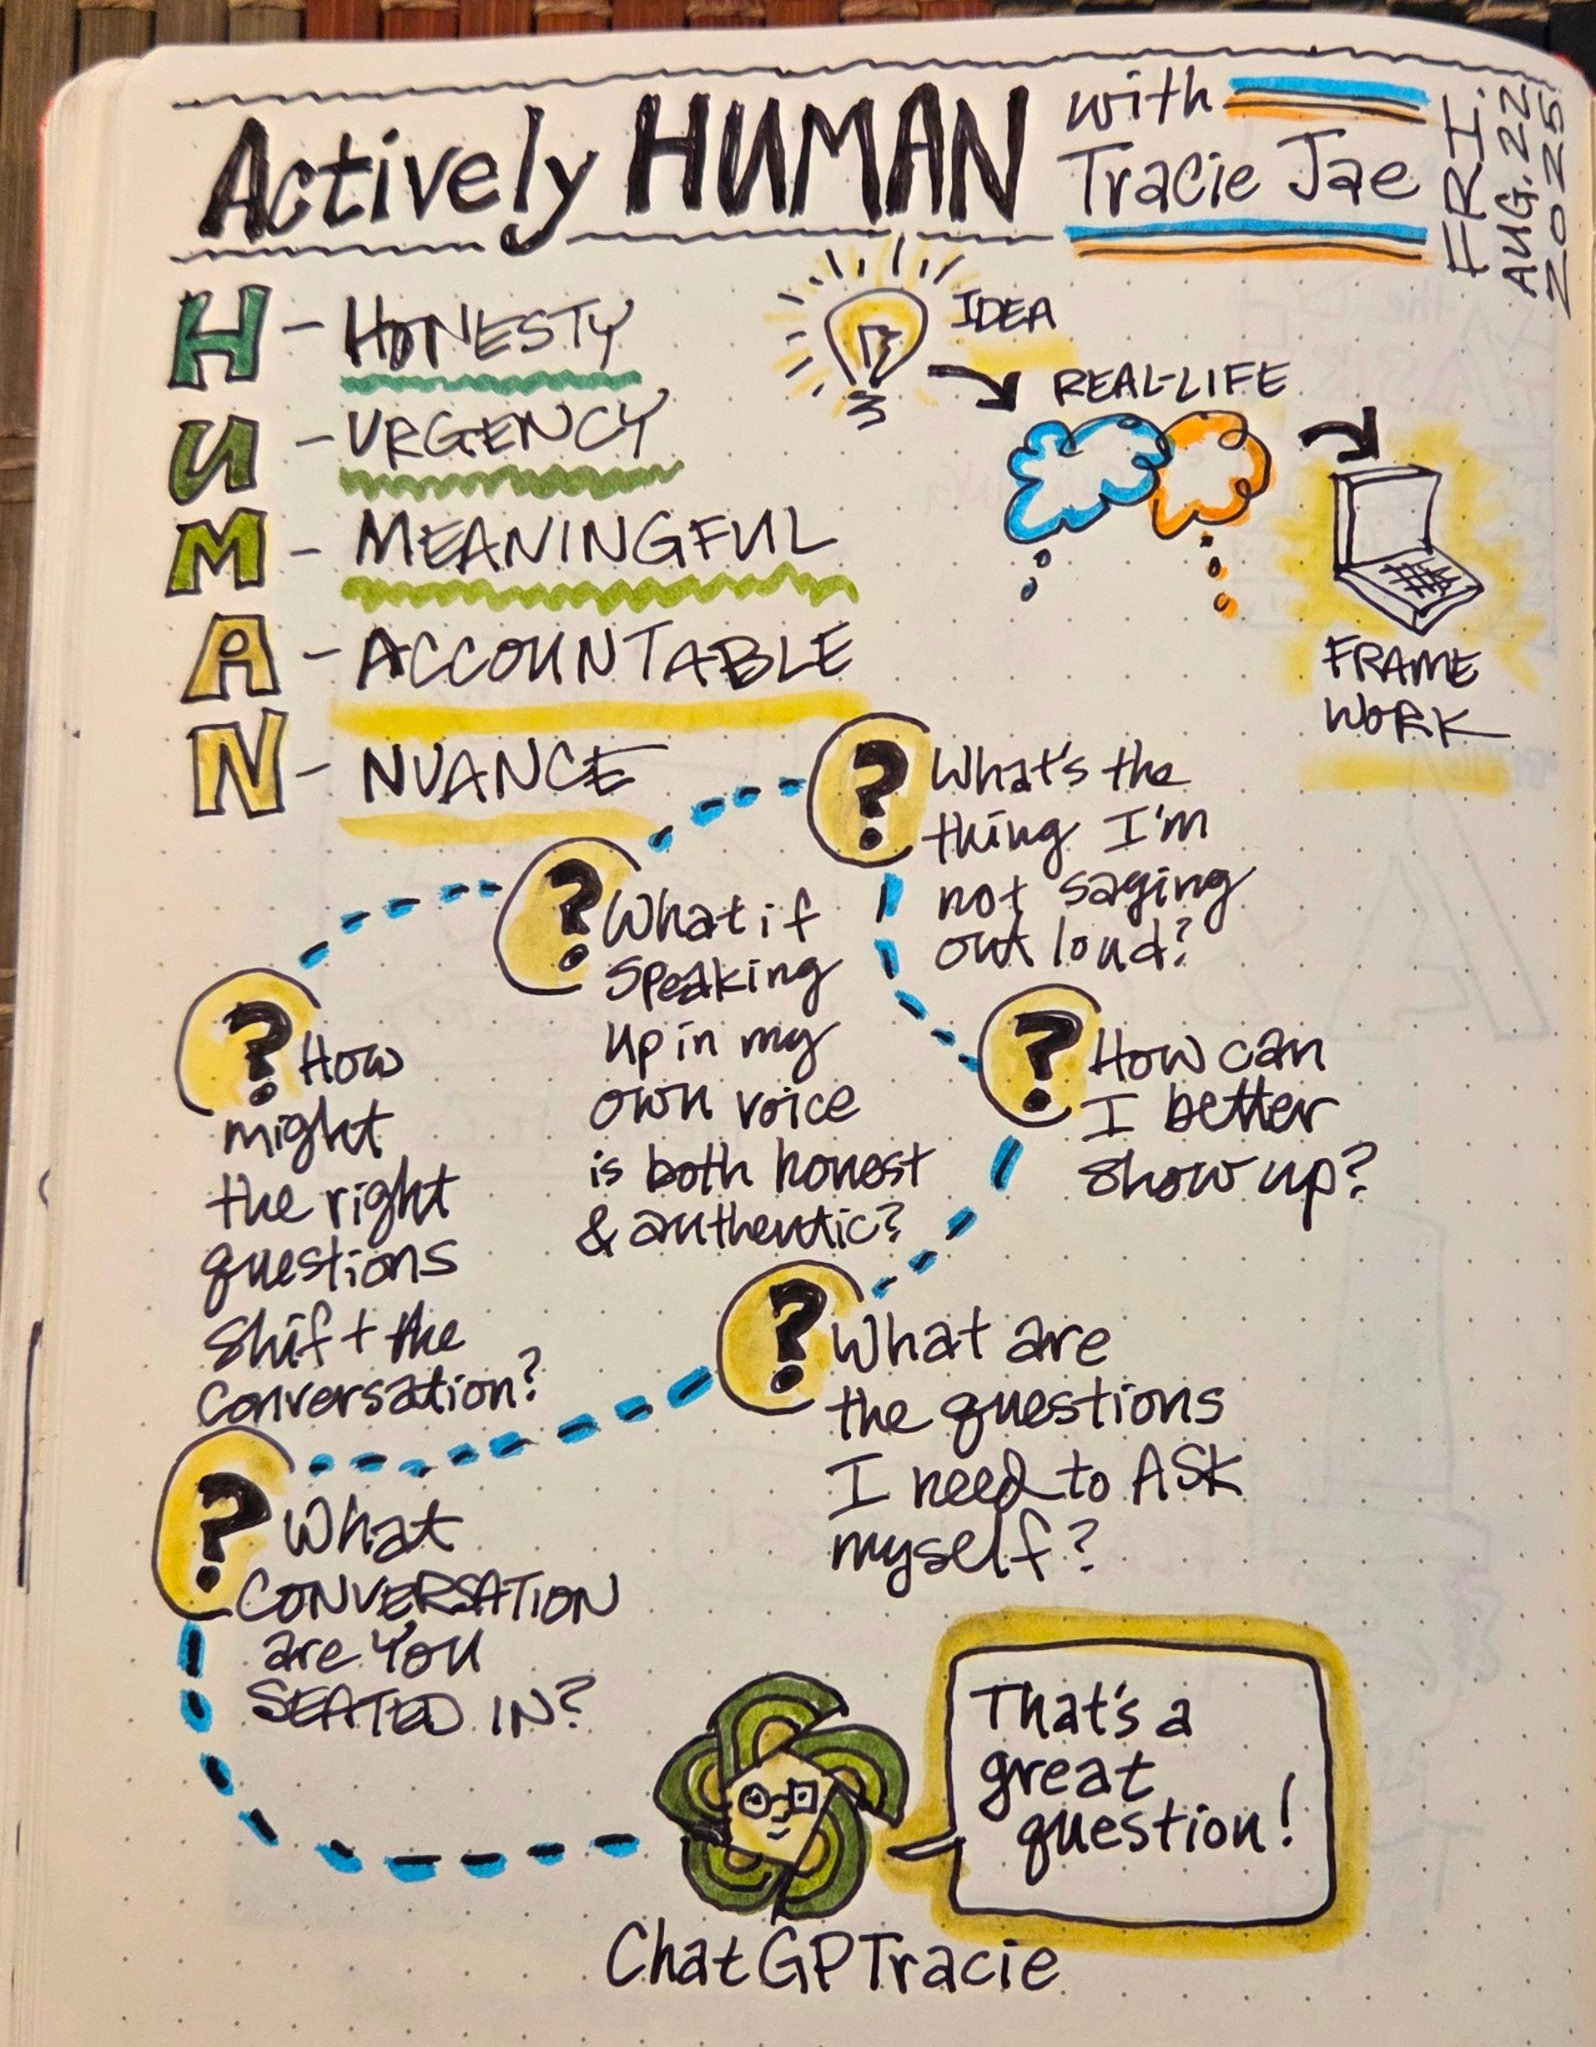 Actively HUMAN
with
Tracie Jae
FRI.
AUG. 22
2025
H - HONESTY
U - URGENCY
M - MEANINGFUL
A - ACCOUNTABLE
N - NUANCE
IDEA
REAL-LIFE
FRAME
WORK
? How
might
the right
questions
shift the
conversation?
? What if
speaking
up in my
own voice
is both honest
& authentic?
? What's the
thing I'm
not saying
out loud?
? How can
I better
show up?
? What are
the questions
I need to ASK
myself?
? What
CONVERSATION
are You
SEATED IN?
That's a
great
question!
ChatGPTracie